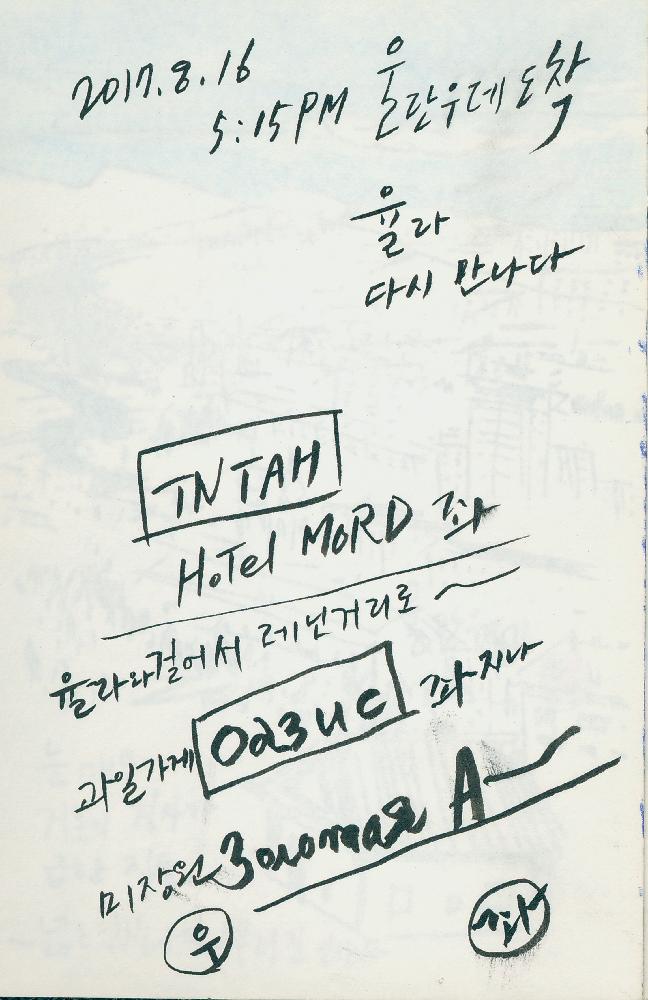 2017.8.16
5:15PM 울란우데 도착
율라
다시 만나다
TNTAH
HoTel MoRD 좌
율라와 걸어서 레닌거리로~
과일가게 Oa3uc 좌 지나
미장원 3oromas A
우 좌